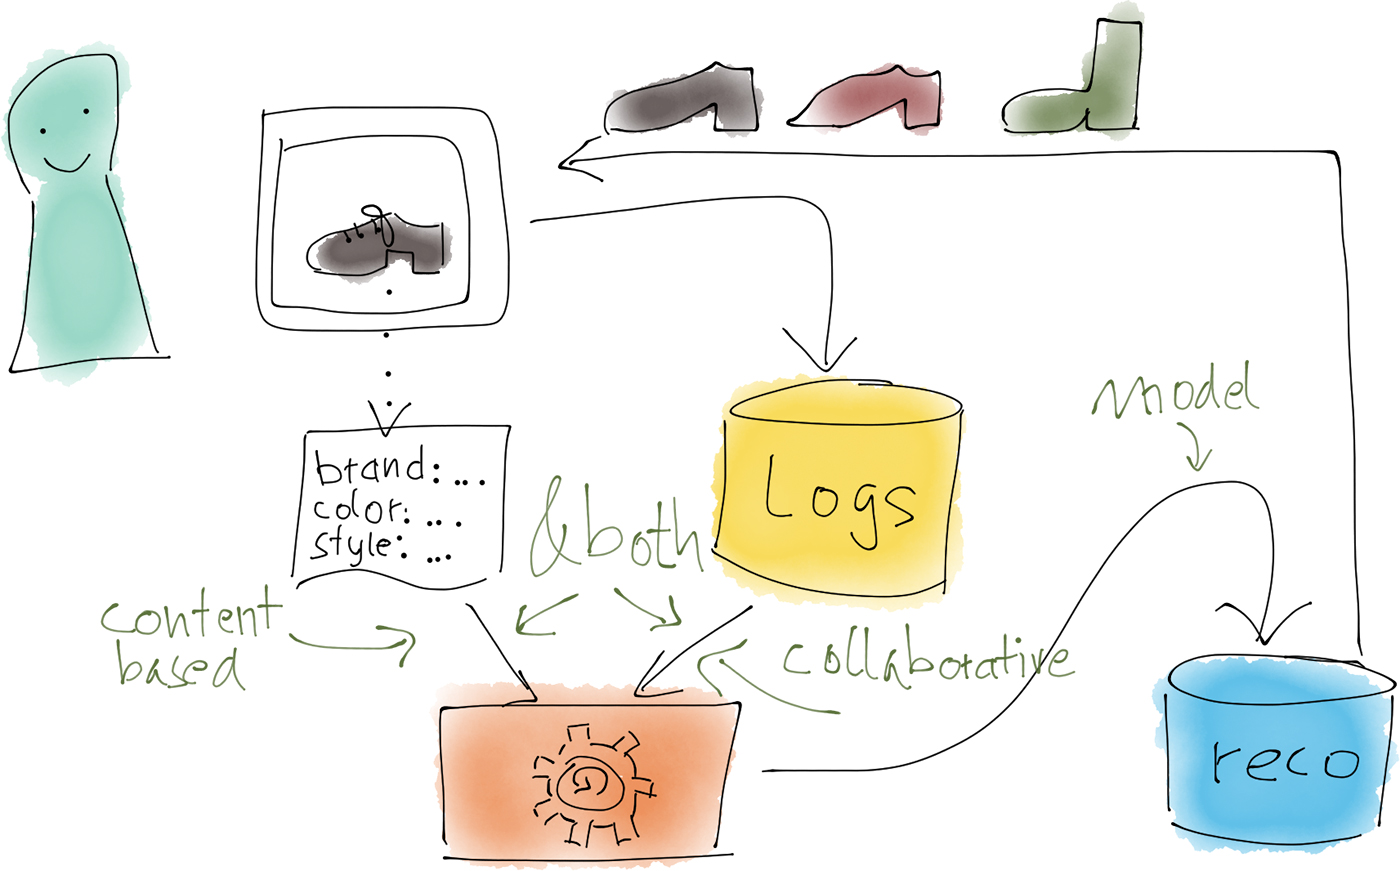 brand: ...
color: ...
style: ...
& both
Logs
model
content
based
collaborative
reco